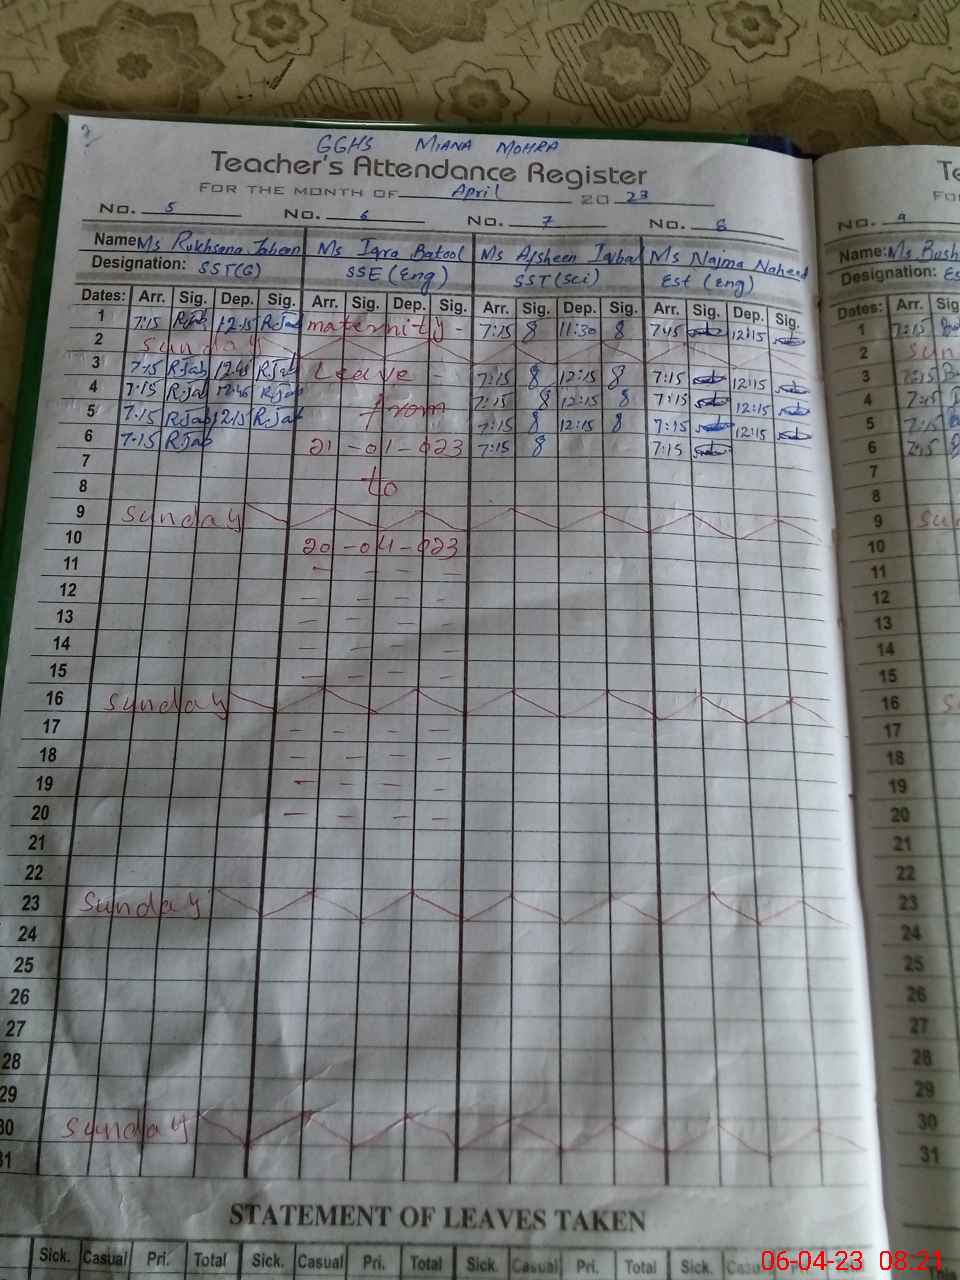 GGHS MIANA MOHRA
Teacher's Attendance Register
FOR THE MONTH OF April 20 23
No. 5 No. 6 No. 7 No. 8
Name Ms Rukhsana Jabeen Ms Iqra Batool Ms Afsheen Iqbal Ms Najma Naheed
Designation: SST(G) SSE (Eng) SST (Sci) Est (eng)
Dates: Arr. Sig. Dep. Sig. Arr. Sig. Dep. Sig. Arr. Sig. Dep. Sig. Arr. Sig. Dep. Sig.
1 7:15 RJab 12:15 RJab maternity - 7:15 8 11:30 8 7:45 12:15
2 Sunday
3 7:15 RJab 12:45 RJab Leave - 7:15 8 12:15 8 7:15 12:15
4 7:15 RJab 12:45 RJab from 7:15 8 12:15 8 7:15 12:15
5 7:15 RJab 12:15 RJab 7:15 8 12:15 8 7:15 12:15
6 7:15 RJab 21-01-023 7:15 8 7:15
7
8 to
9 Sunday
10 20-04-023
11 - - - -
12 - - - -
13 - - - -
14 - - - -
15 - - - -
16 Sunday
17 - - - -
18 - - - -
19 - - - -
20 - - - -
21
22
23 Sunday
24
25
26
27
28
29
30 Sunday
31
STATEMENT OF LEAVES TAKEN
Sick. Casual Pri. Total Sick. Casual Pri. Total Sick. Casual Pri. Total Sick.
No. 9
Name: Ms Bush
Designation: Es
Dates: Arr. Sig.
1 7:15
2 Sun
3 7:15
4 7:15
5 7:15
6 7:15
7
8
9 Su
10
11
12
13
14
15
16 S
17
18
19
20
21
22
23
24
25
26
27
28
29
30
31
06-04-23 08:21